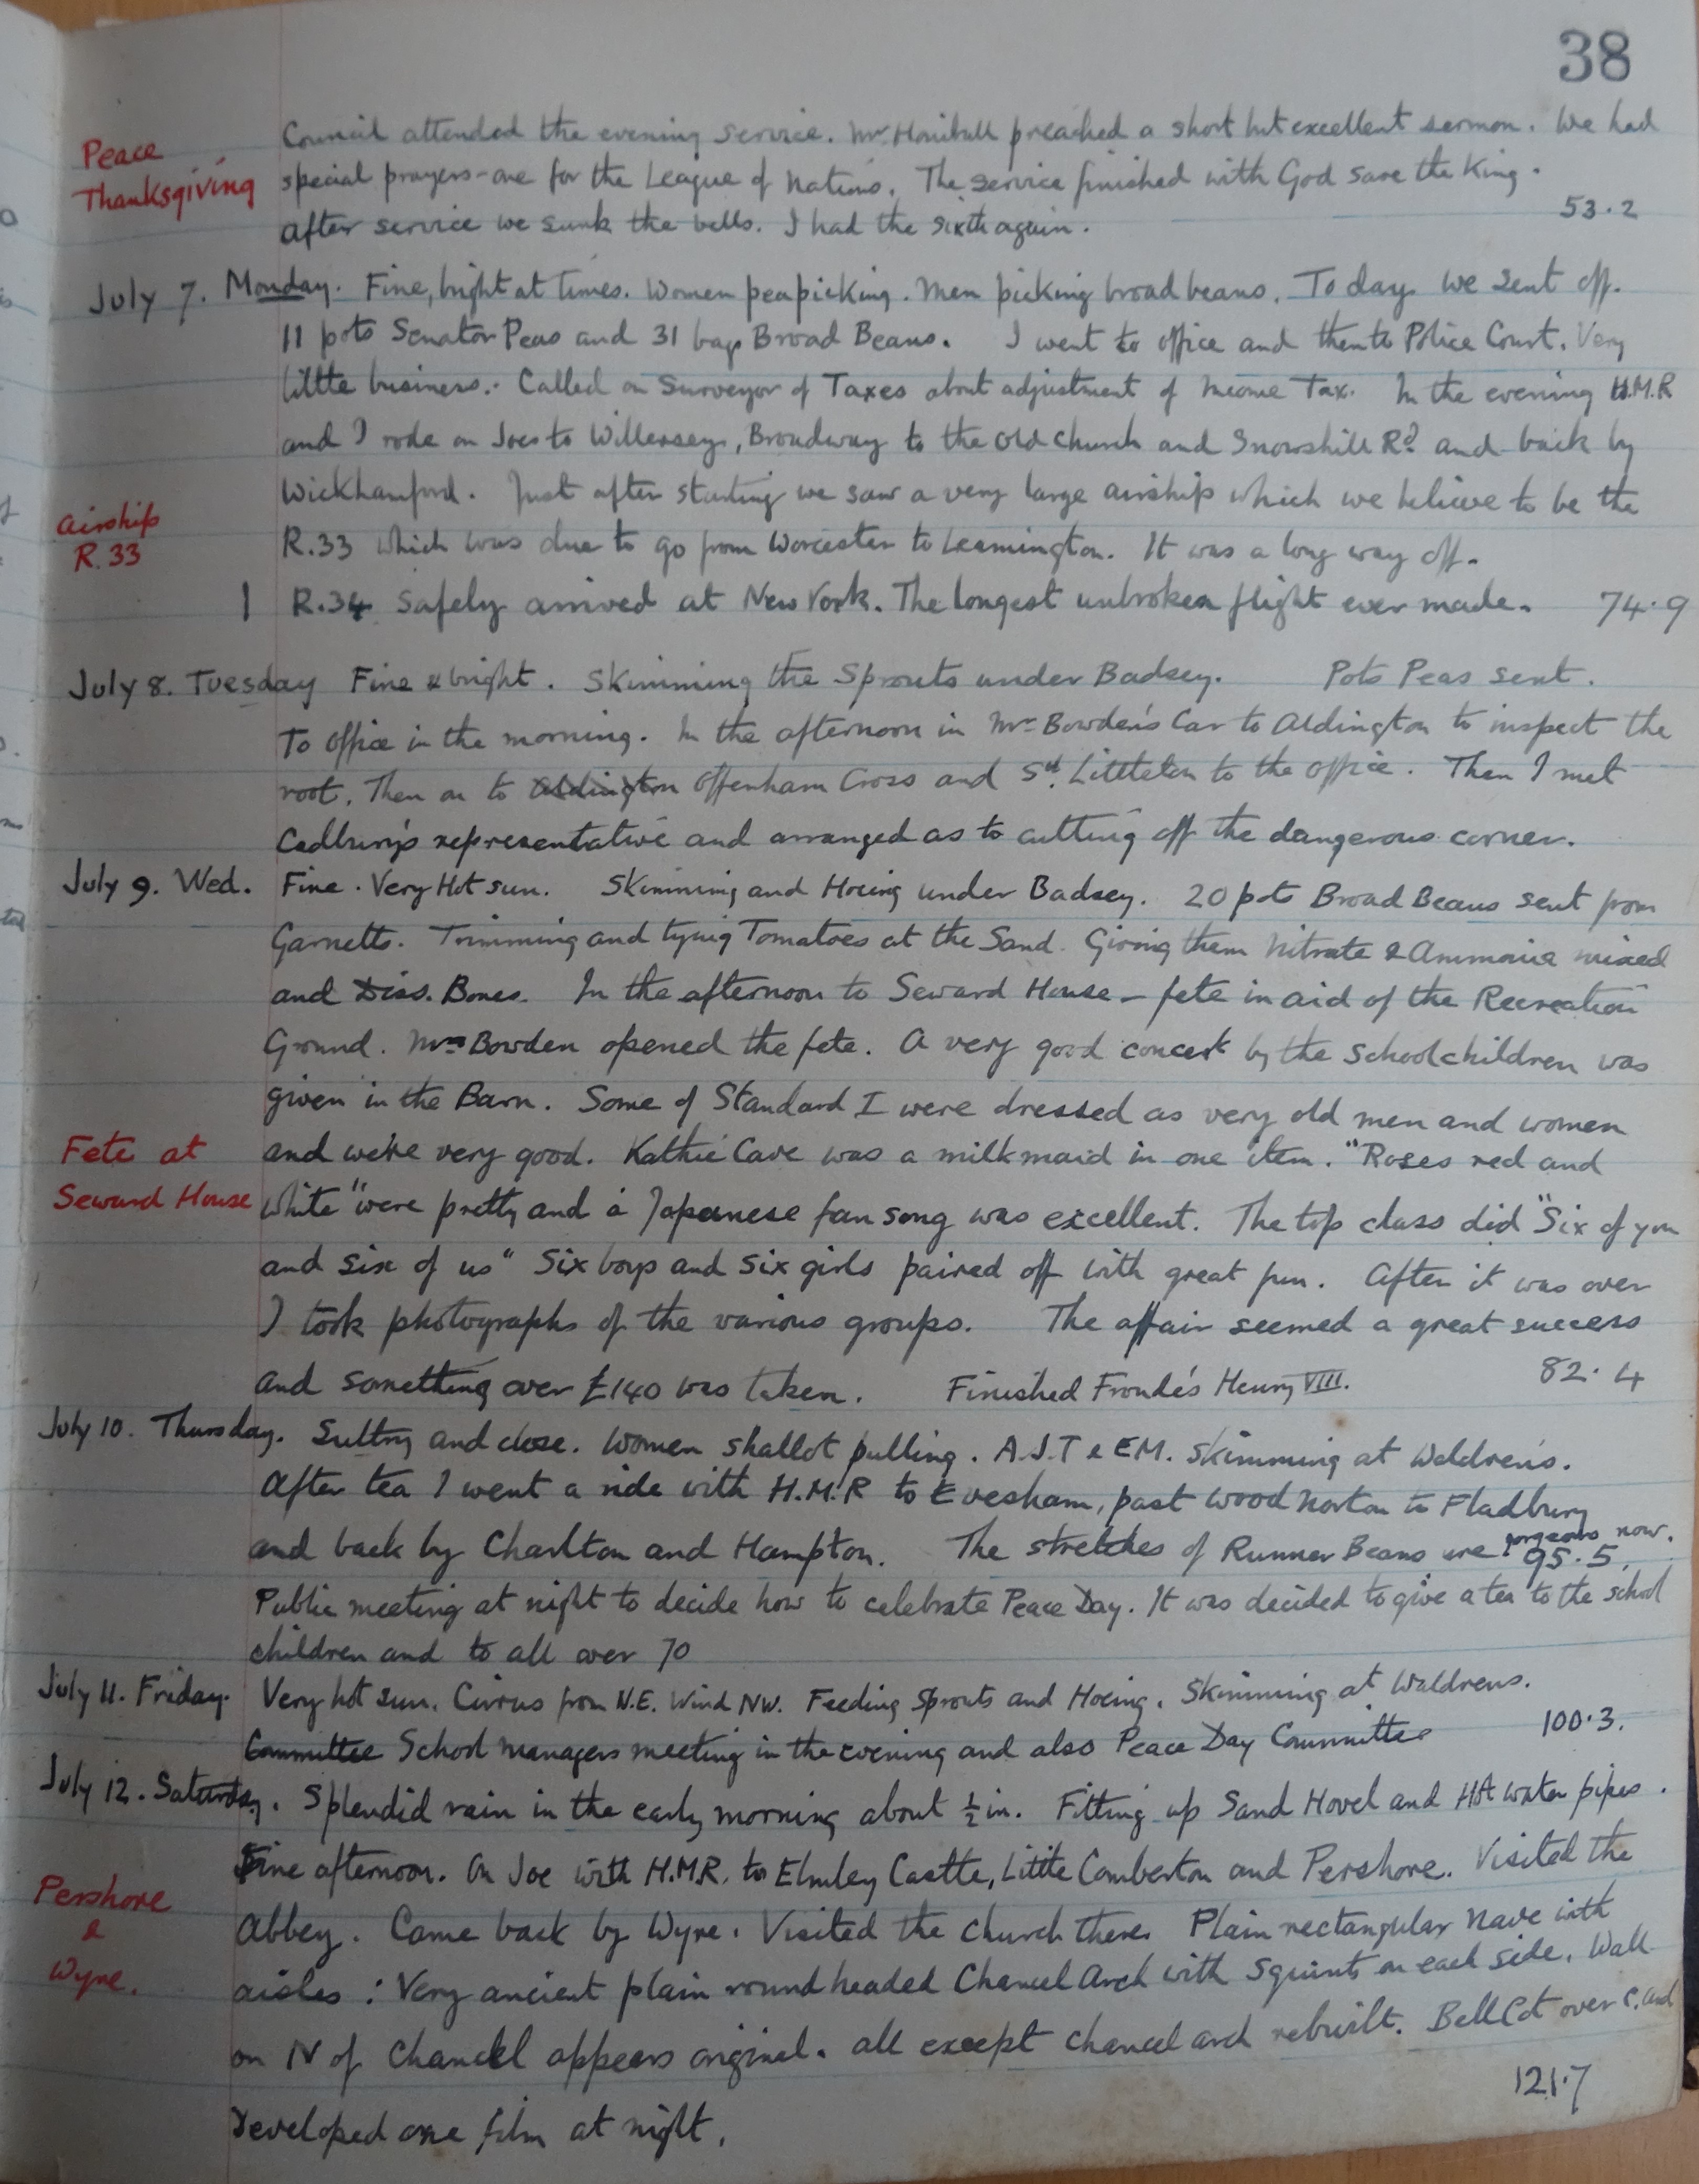 38
Peace
Thanksgiving
Council attended the evening service. Mr Hanibull preached a short but excellent sermon. We had
special prayers - one for the League of Nations. The service finished with God save the King.
after service we sunk the bells. I had the sixth again. 53.2
July 7. Monday. Fine, bright at times. Women peapicking. Men picking broad beans. Today we sent off
11 pots Senator Peas and 31 bags Broad Beans. I went to office and then to Police Court. Very
little business. Called on Surveyor of Taxes about adjustment of Income Tax. In the evening H.M.R
and I rode on Joes to Willersey, Broadway to the old church and Snowshill Rd and back by
Wickhamford. Just after starting we saw a very large airship which we believe to be the
Airship
R.33
R.33 which was due to go from Worcester to Leamington. It was a long way off.
R.34 Safely arrived at New York. The longest unbroken flight ever made. 74.9
July 8. Tuesday Fine & bright. Skimming the Sprouts under Badsey. Pots Peas sent.
To office in the morning. In the afternoon in Mr Bowden's Car to Aldington to inspect the
root. Then on to Aldington Offenham Cross and Sth Littleton to the office. Then I met
Cadbury's representative and arranged as to cutting off the dangerous corner.
July 9. Wed. Fine. Very Hot sun. Skimming and Hoeing under Badsey. 20 pots Broad Beans sent from
Garnetts. Trimming and tying Tomatoes at the Sand. Giving them Nitrate & Ammonia mixed
and Diss. Bones. In the afternoon to Seward House - fete in aid of the Recreation
Ground. Mrs Bowden opened the fete. A very good concert by the schoolchildren was
given in the Barn. Some of Standard I were dressed as very old men and women
Fete at
Seward House
and were very good. Kathie Cave was a milkmaid in one item. "Roses red and
white" were pretty and a Japanese fan song was excellent. The top class did "Six of you
and six of us" Six boys and six girls paired off with great fun. After it was over
I took photographs of the various groups. The affair seemed a great success
and something over £140 was taken. Finished Froude's Henry VIII. 82.4
July 10. Thursday. Sultry and close. Women shallot pulling. A.J.T & EM. skimming at Waldrens.
After tea I went a ride with H.M.R to Evesham, past Wood Norton to Fladbury
and back by Charlton and Hampton. The stretches of Runner Beans are gorgeous now. 95.5.
Public meeting at night to decide how to celebrate Peace Day. It was decided to give a tea to the school
children and to all over 70
July 11. Friday. Very hot sun. Cirrus from N.E. Wind NW. Feeding Sprouts and Hoeing. Skimming at Waldrens.
Committee School managers meeting in the evening and also Peace Day Committee 100.3.
July 12. Saturday. Splendid rain in the early morning about ½ in. Fitting up Sand Hovel and Hot water pipes.
Fine afternoon. On Joe with H.M.R. to Elmley Castle, Little Comberton and Pershore. Visited the
Pershore
&
Wyre.
Abbey. Came back by Wyre. Visited the church there. Plain rectangular Nave with
aisles: Very ancient plain round headed Chancel Arch with Squints on each side. Wall
on N of Chancel appears original. all except chancel arch rebuilt. Bell Cot over C. and
121.7
Developed one film at night.